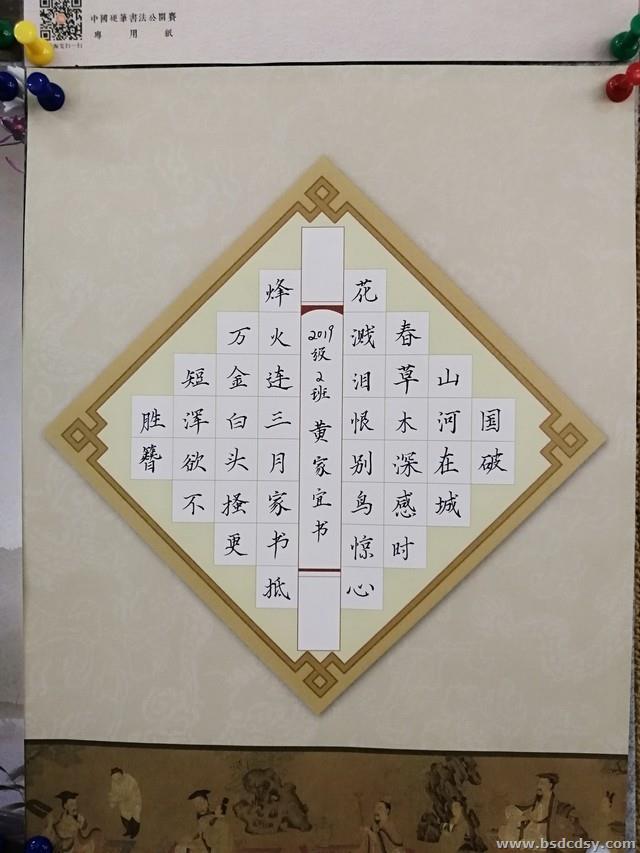 中國硬筆書法公開賽
專用紙
国破
山河在城
春草木深感时
花溅泪恨别鸟惊心
2019级2班 黄家宜书
烽火连三月家书抵
万金白头搔更
短浑欲不
胜簪
www.bsdcdsy.com